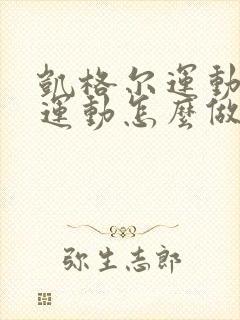 凱格尔運動
運動怎麼做
弥生志郎